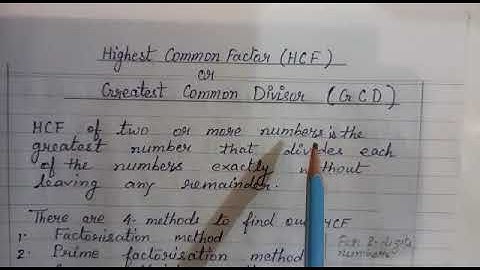 Highest Common Factor (HCF)
or
Greatest Common Divisor (GCD)
HCF of two or more numbers is the
greatest number that divides each
of the numbers exactly without
leaving any remainder.
There are 4 methods to find out HCF
1. Factorisation method
2. Prime factorisation method
For 2-digits
numbers